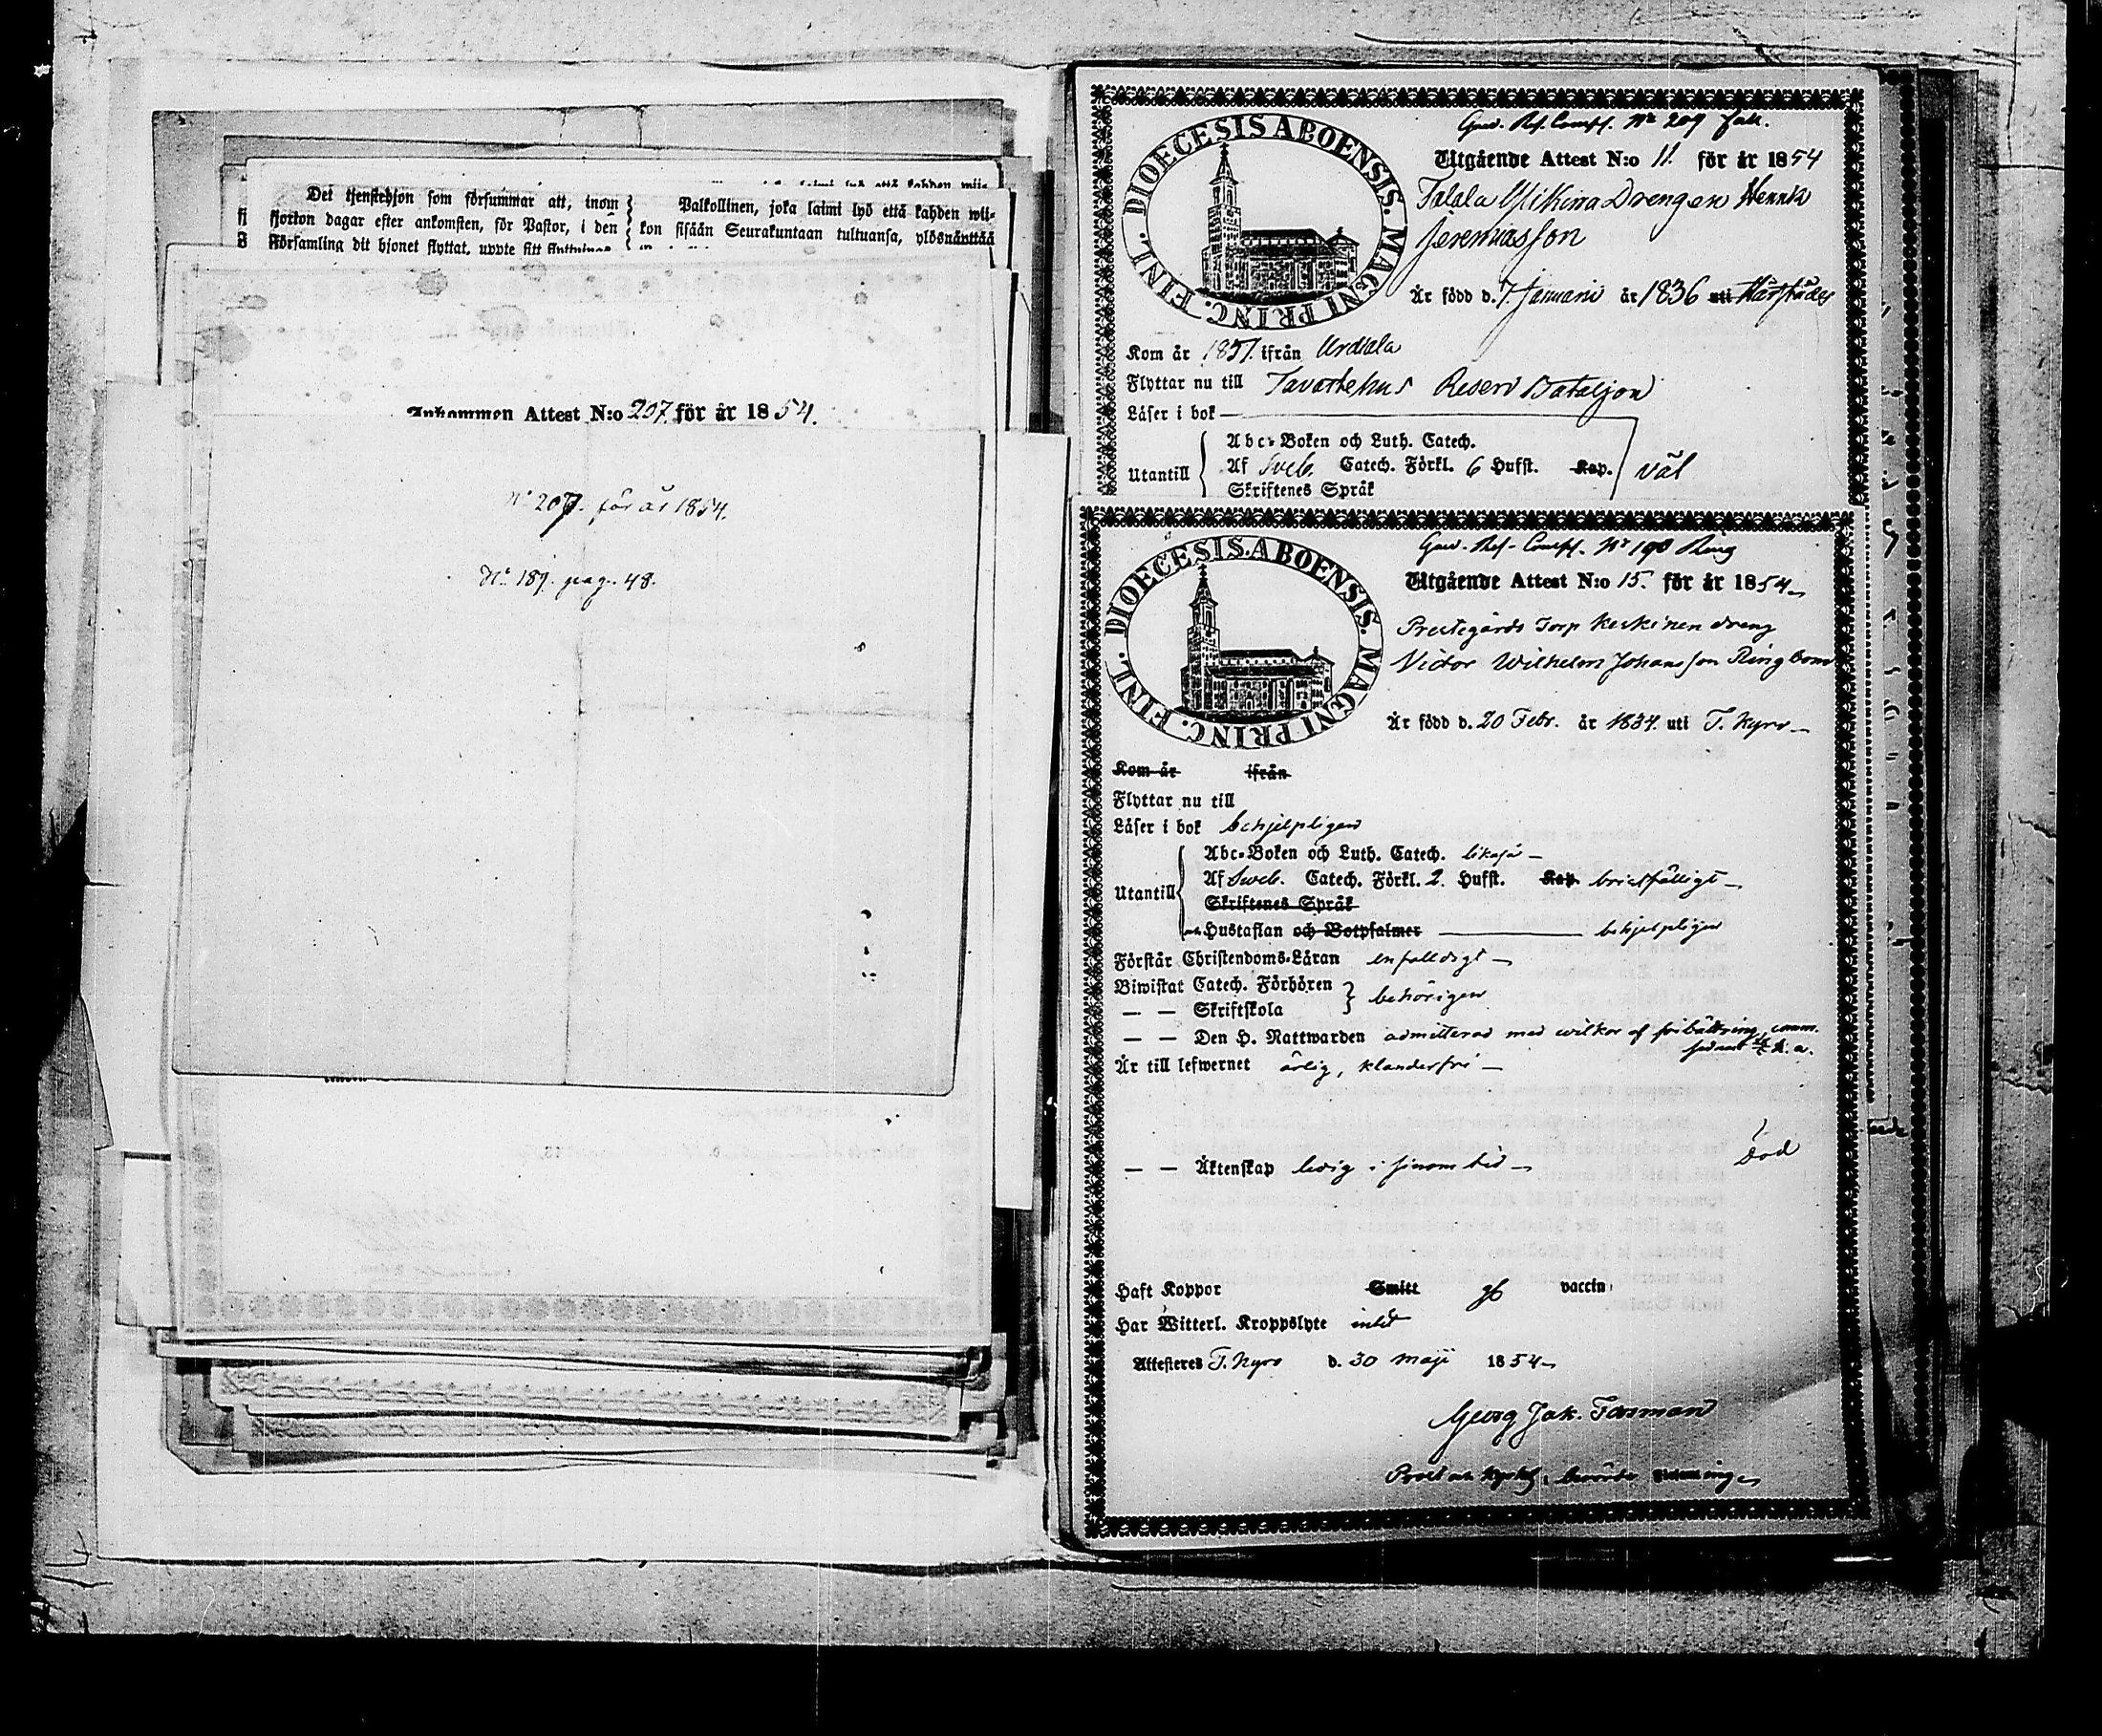 Det tjenstehjon som försummar att, inom
fjorton dagar efter ankomsten, för Pastor, i den
Församling dit hjonet flyttat, uppte sitt
Palkollinen, joka laimi lyö että kahden wii-
kon sisään Seurakuntaan tultuansa, ylösnäyttää
Inkommen Attest N:o 207. för år 1854.
N:o 207. för år 1854.
N:o 187. pag. 48.
N:o 209
DIOECESIS ABOENSIS. MAGNI PRINC. FINL.
Utgående Attest N:o 11. för år 1854
Drengen Henrik
Jeremiasson
Är född d. 7. Januarii år 1836 uti Härstädes
Kom år 1851. ifrån Urdiala
Flyttar nu till Tavastehus Reserv Bataljon
Läser i bok
Utantill
Abc-Boken och Luth. Catech.
Af Sveb. Catech. Förkl. 6 Hufst. Kap.
väl
Skriftenes Språk
N:o 190 Ring
DIOECESIS ABOENSIS. MAGNI PRINC. FINL.
Utgående Attest N:o 15. för år 1854
Prestegårds Torp Keskinen dreng
Victor Wilhelm Johansson Ringbom
Är född d. 20 Febr. år 1834. uti T. Kyro
Kom år ifrån
Flyttar nu till
Läser i bok behjelpligen
Utantill
Abc-Boken och Luth. Catech. likaså
Af Sveb. Catech. Förkl. 2. Hufst. Kap. bristfälligt
Skriftenes Språk
Hustaflan och Botpsalmer behjelpligen
Förstår Christendoms-Läran enfaldigt
Biwistat Catech. Förhören
— — Skriftskola
behörigen
— — Den H. Nattwarden admitterad med wilkor af förbättring, comm.
Är till lefwernet ärlig, klanderfri
Död
— — Äktenskap ledig i sinom tid
Haft Koppor Smitt vaccin
Har Witterl. Kroppslyte intet
Attesteres T. Kyro d. 30 Maji 1854
Georg Jak. Forsman